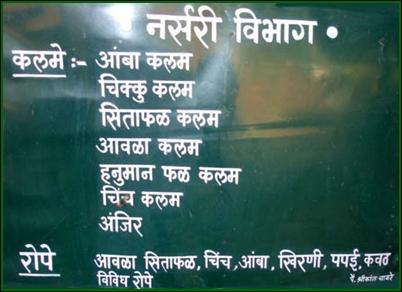 • नर्सरी विभाग •
कलमे :- आंबा कलम
चिक्कु कलम
सिताफळ कलम
आवळा कलम
हनुमान फळ कलम
चिंच कलम
अंजिर
रोपे आवळा सिताफळ, चिंच, आंबा, खिरणी, पपई, कवठ
विविध रोपे
पें. श्रीकांत